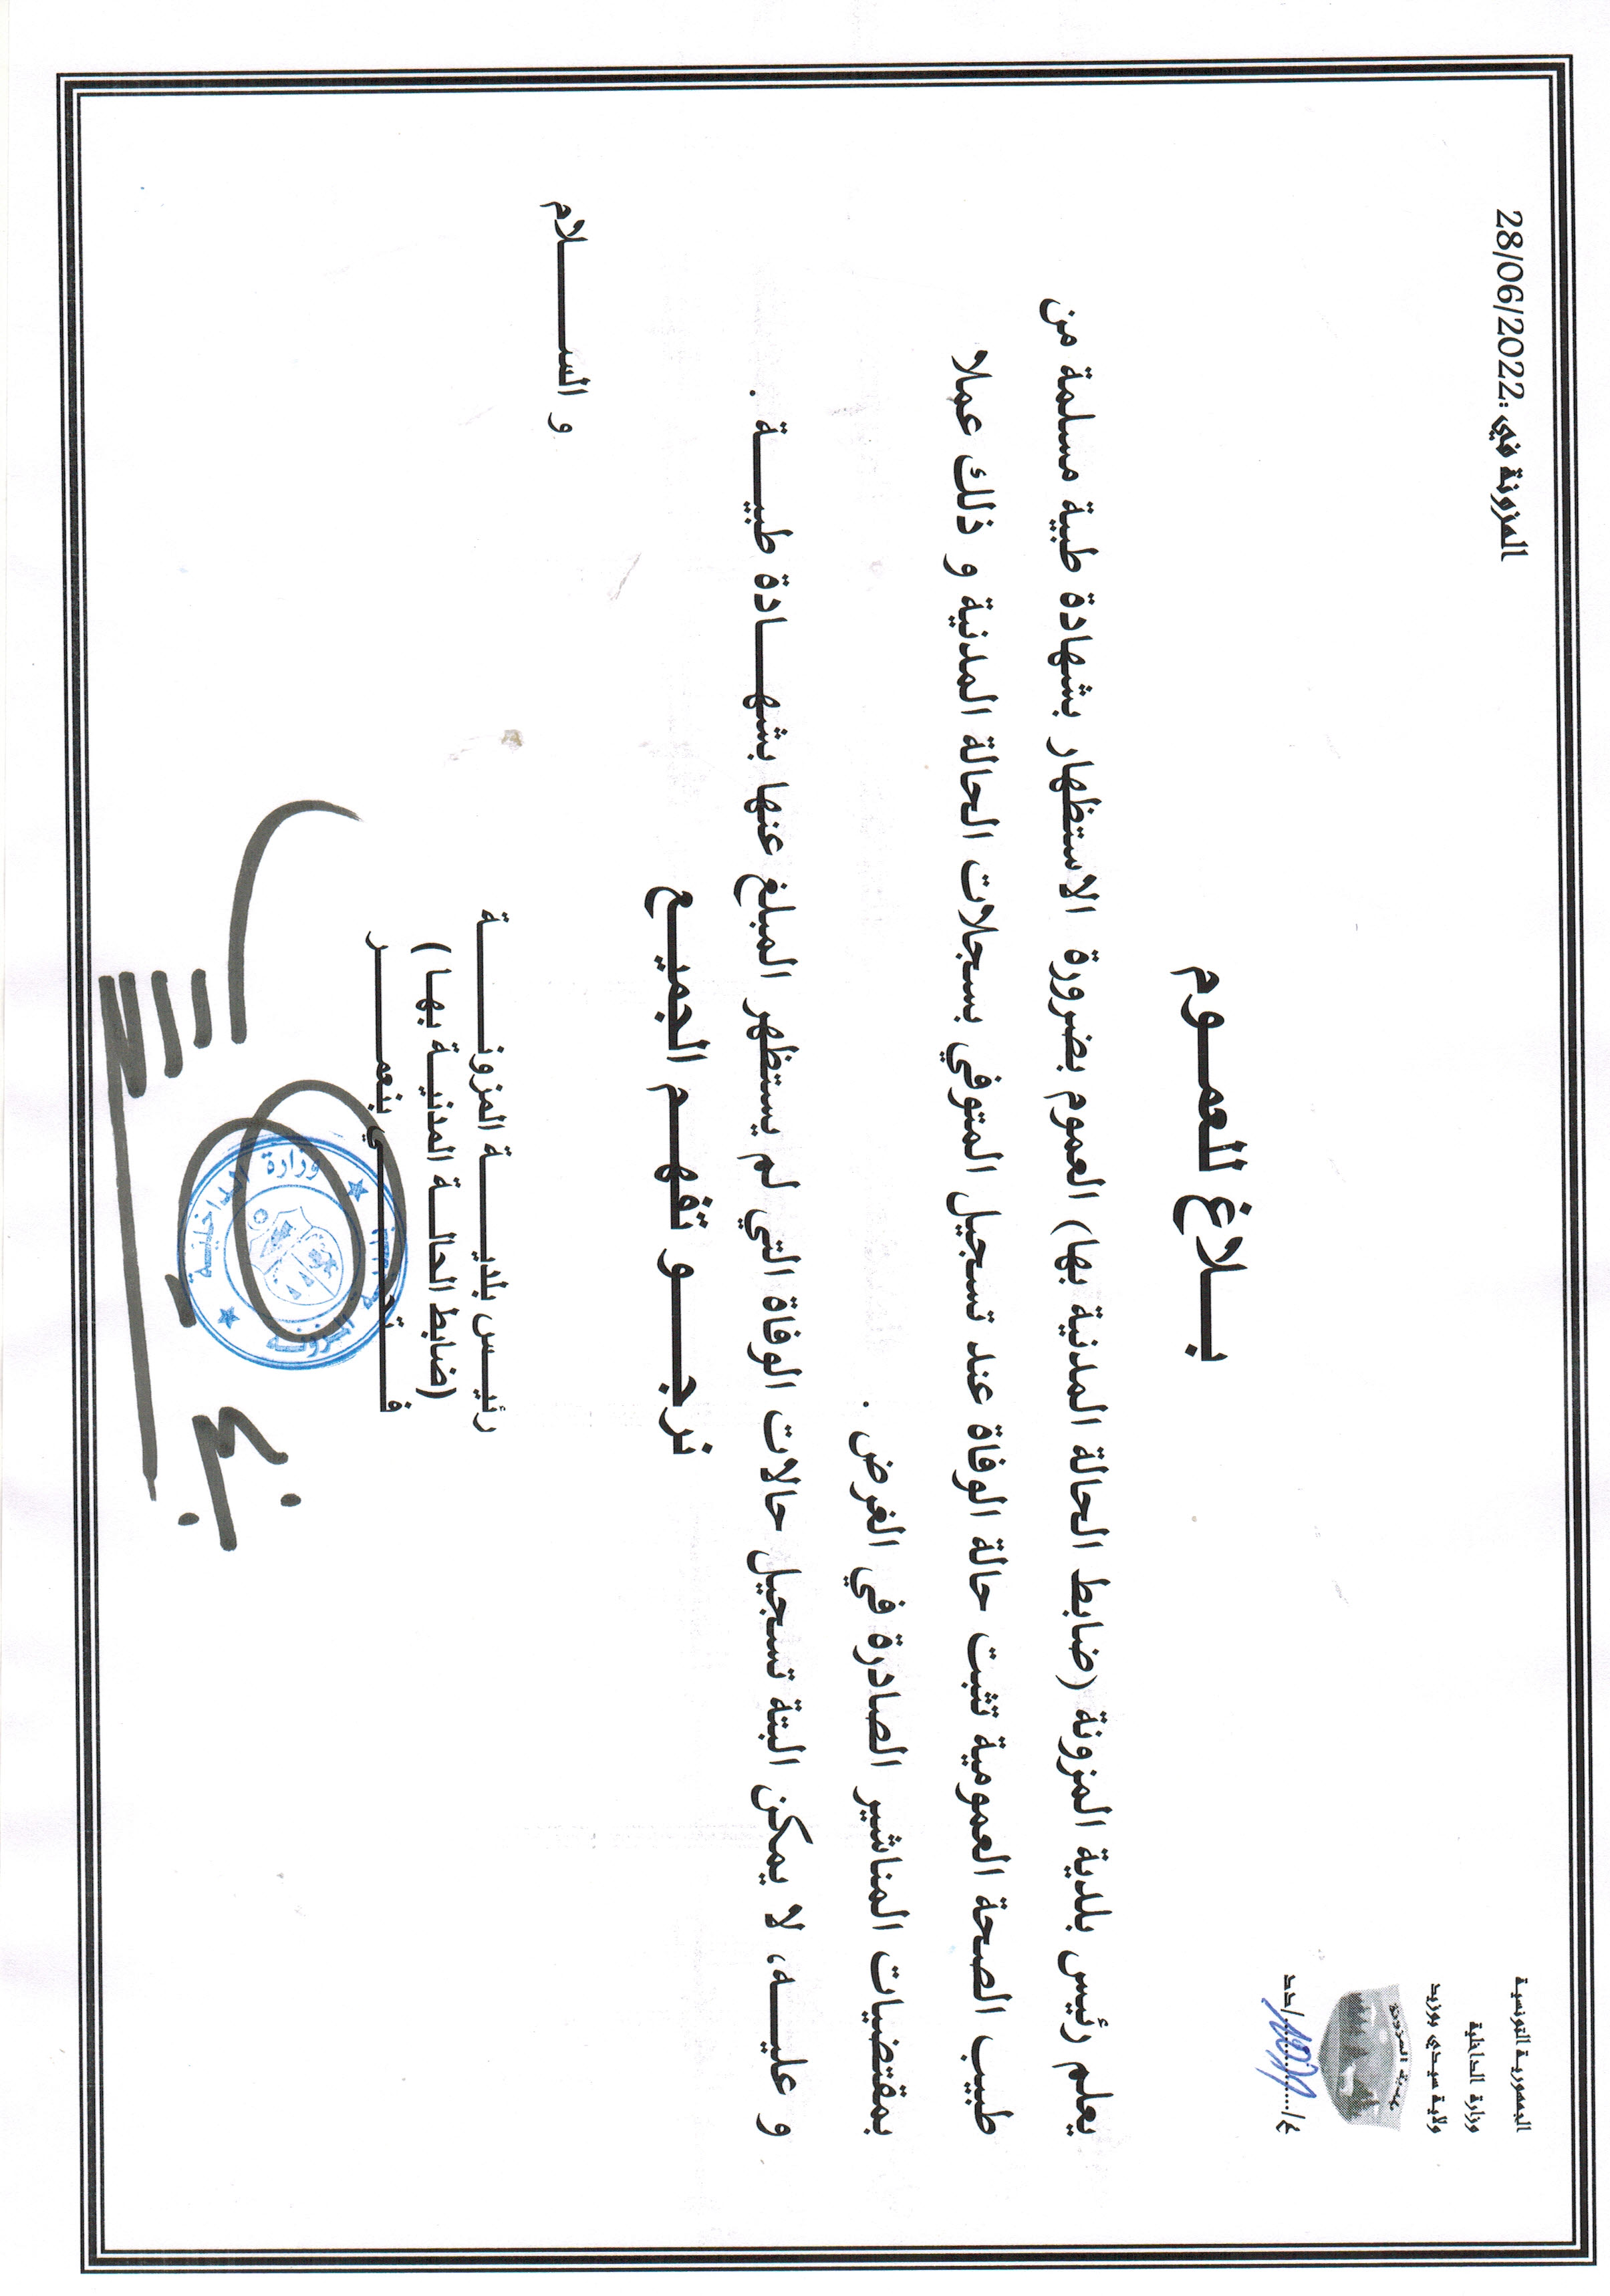 الجمهورية التونسية
وزارة الداخلية
ولاية سيدي بوزيد
بلدية المزونة
ع/............/دد
المزونة في :28/06/2022
بـــلاغ للعمـــوم
يعلم رئيس بلدية المزونة (ضابط الحالة المدنية بها) العموم بضرورة الاستظهار بشهادة طبية مسلمة من
طبيب الصحة العمومية تثبت حالة الوفاة عند تسجيل المتوفي بسجلات الحالة المدنية و ذلك عملا
بمقتضيات المناشير الصادرة في الغرض .
و عليـــه، لا يمكن البتة تسجيل حالات الوفاة التي لم يستظهر المبلغ عنها بشهـــادة طبيـــة .
نرجـــو تفهـــم الجميـــع
و الســـــلام
رئيــس بلديــــة المزونــــة
(ضابط الحالــة المدنيــة بهـا )
فـــتحـــــي بنعمـــــر
وزارة الداخلية
المزونة